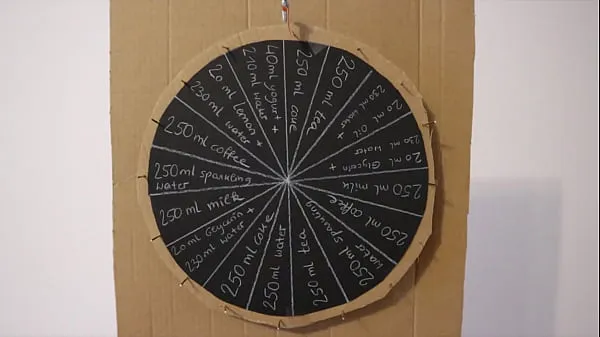 250 ml coke
250 ml tea
250 ml water +
20 ml Oil
230 ml water
20 ml Glycerin +
250 ml milk
250 ml coffee
250 ml sparkling
water
250 ml tea
250 ml water
250 ml coke
230 ml water +
20 ml Glycerin
250 ml milk
250 ml sparkling
water
250 ml coffee
230 ml water
20 ml lemon +
210 ml water
40 ml yogurt +